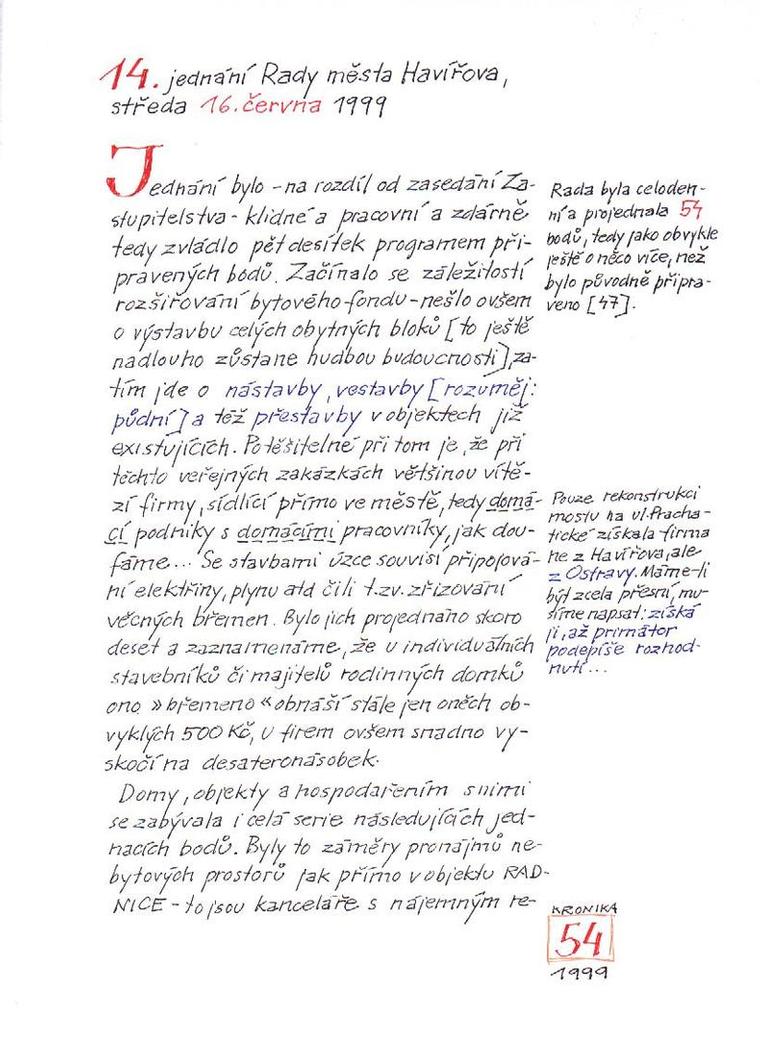 14. jednání Rady města Havířova,
středa 16. června 1999
Jednání bylo - na rozdíl od zasedání Za-
stupitelstva - klidné a pracovní a zdárně
tedy zvládlo pět desítek programem při-
pravených bodů. Začínalo se záležitostí
rozšiřování bytového fondu - nešlo ovšem
o výstavbu celých obytných bloků [to ještě
nadlouho zůstane hudbou budoucnosti], za-
tím jde o nástavby, vestavby [rozuměj:
půdní] a též přestavby v objektech již
existujících. Potěšitelné při tom je, že při
těchto veřejných zakázkách většinou vítě-
zí firmy, sídlící přímo ve městě, tedy domá-
cí podniky s domácími pracovníky, jak dou-
fáme... Se stavbami úzce souvisí připojová-
ní elektřiny, plynu atd čili t.zv. zřizování
věcných břemen. Bylo jich projednáno skoro
deset a zaznamenáme, že u individuálních
stavebníků či majitelů rodinných domků
ono »břemeno« obnáší stále jen oněch ob-
vyklých 500 Kč, u firem ovšem snadno vy-
skočí na desateronásobek.
Domy, objekty a hospodařením s nimi
se zabývala i celá serie následujících jed-
nacích bodů. Byly to záměry pronájmů ne-
bytových prostorů jak přímo v objektu RAD-
NICE - to jsou kanceláře s nájemným re-
Rada byla celoden-
ní a projednala 54
bodů, tedy jako obvykle
ještě o něco více, než
bylo původně připra-
veno [47].
Pouze rekonstrukci
mostu na ul. Pracha-
tické získala firma
ne z Havířova, ale
z Ostravy. Máme-li
být zcela přesní, mu-
síme napsat: získá
ji, až primátor
podepíše rozhod-
nutí...
KRONIKA
54
1999